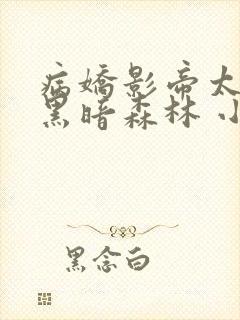 病嬌影帝太
黑暗森林 小
黑念白